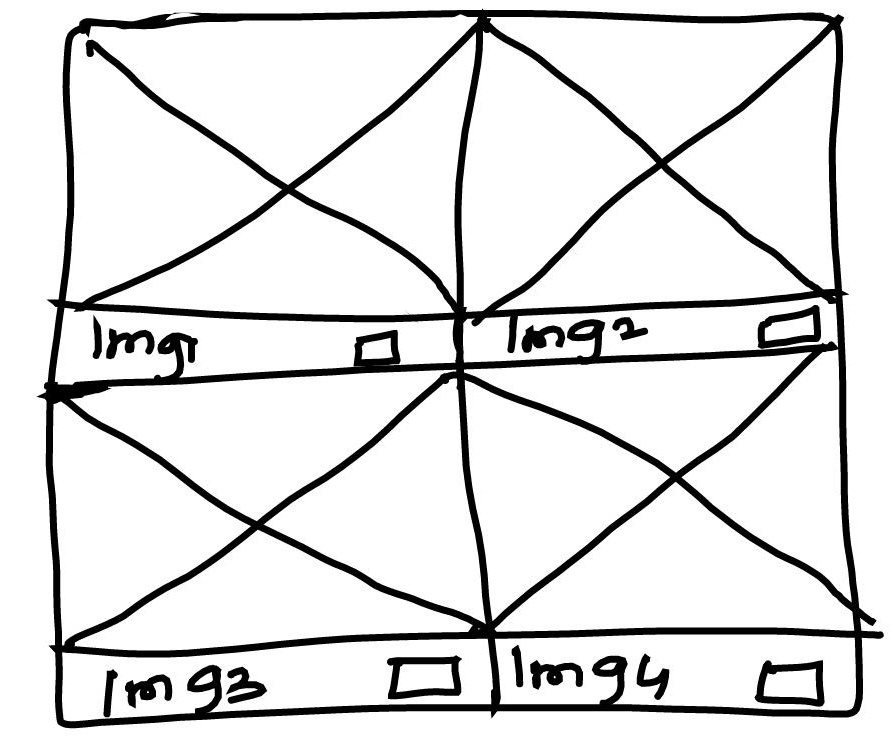 Img1 Img2
Img3 Img4